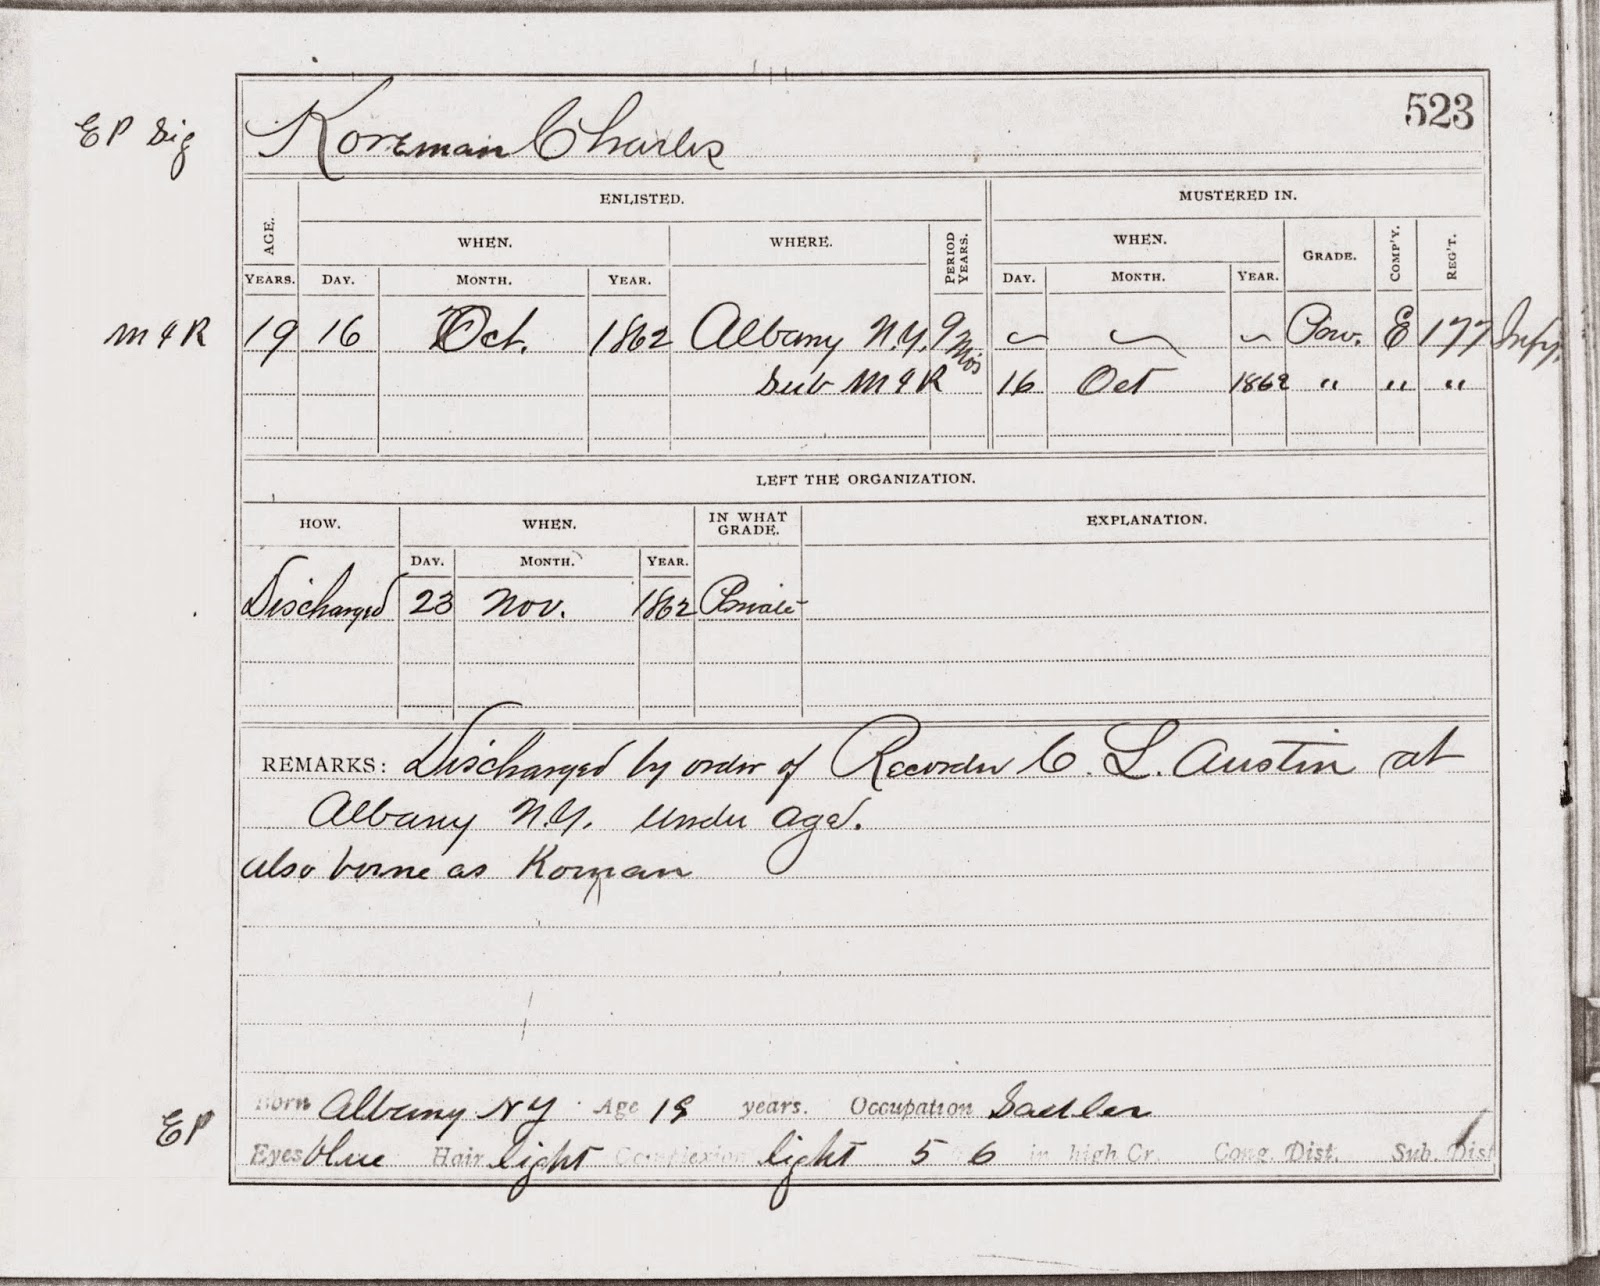 523
EP Sig Koreman Charles
ENLISTED. MUSTERED IN.
AGE. WHEN. WHERE. PERIOD YEARS. WHEN. GRADE. COMP'Y. REG'T.
YEARS. DAY. MONTH. YEAR. DAY. MONTH. YEAR.
M & R 19 16 Oct. 1862 Albany N.Y. 9 Mo's E 177 Infy.
Sub M & R 16 Oct 1862 " " "
LEFT THE ORGANIZATION.
HOW. WHEN. IN WHAT GRADE. EXPLANATION.
DAY. MONTH. YEAR.
Discharged 23 Nov. 1862 Private
REMARKS: Discharged by order of Recorder C. L. Austin at
Albany N.Y. under age.
also borne as Korman
Born Albany NY Age 19 years. Occupation Sadler
EP
Eyes blue Hair light Complexion light 5 6 in high Cr. Cong. Dist. Sub. Dist